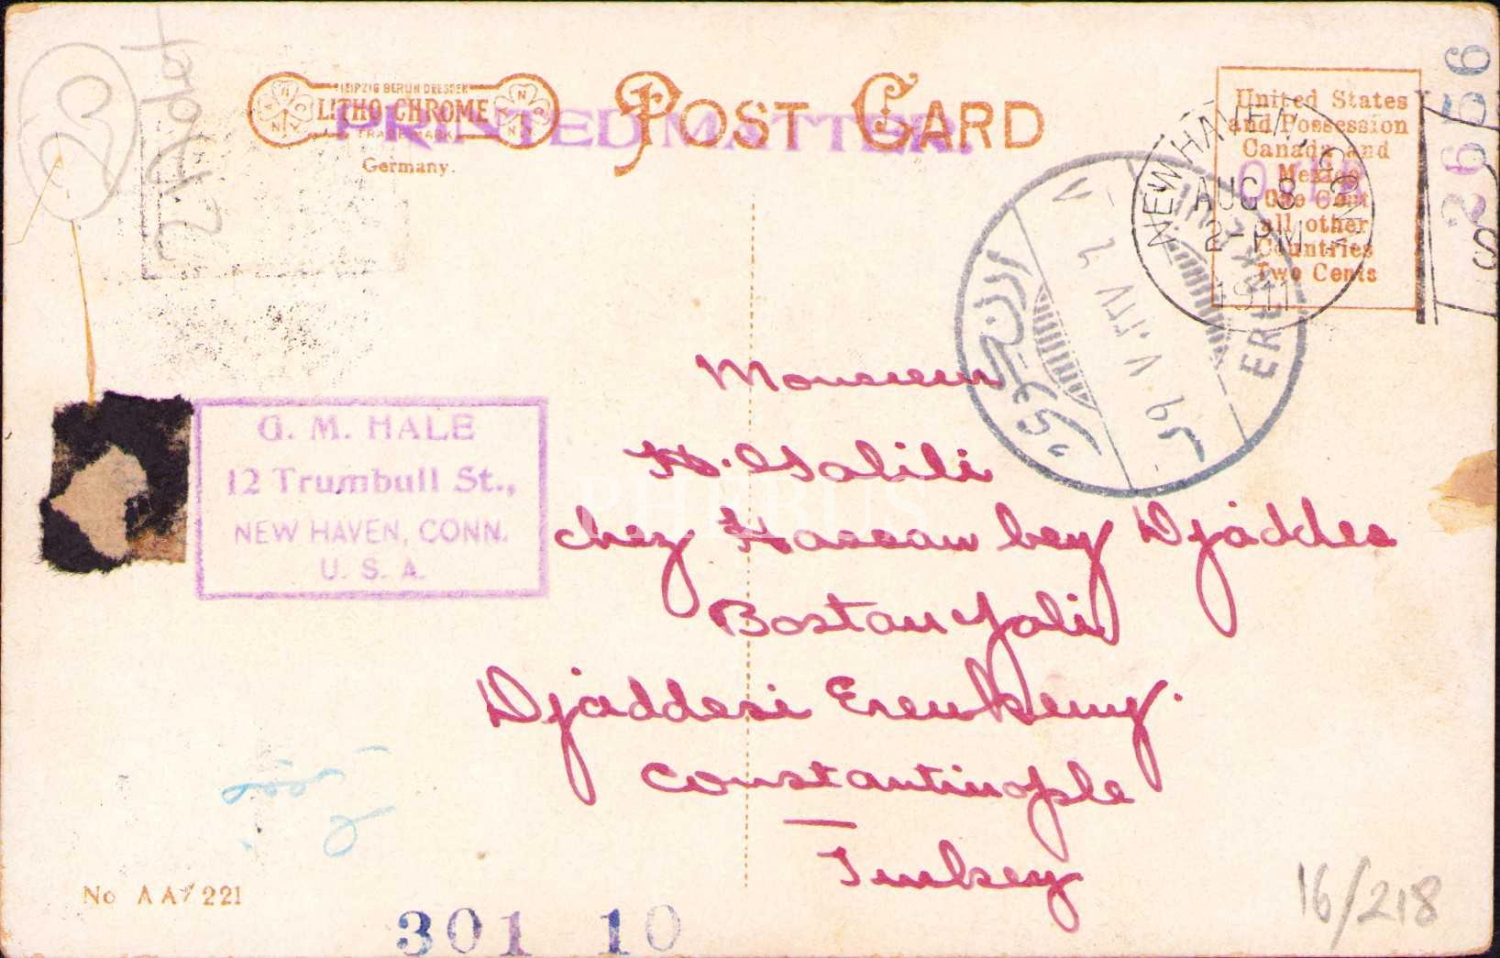 LEIPZIG BERLIN DRESDEN
LITHO-CHROME
TRADE MARK
Germany.
POST CARD
PRINTED MATTER.
United States
and Possession
Canada and
Mexico
One Cent
all other
Countries
Two Cents
NEW HAVEN, CONN
AUG 8
2-PM
1911
26566
G. M. HALE
12 Trumbull St.,
NEW HAVEN, CONN.
U. S. A.
Monsieur
H. Galili
chez Hassan bey Djaddes
Bostan Yali
Djaddesi Erenkeuy.
Constantinople
Turkey
PHEBUS
No AA 221
301 10
16/218